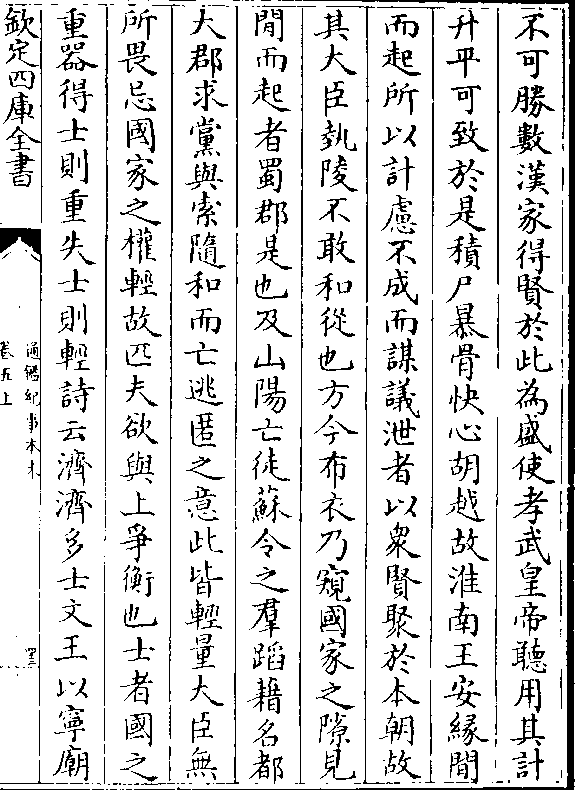 不可勝數漢家得賢於此為盛使孝武皇帝聽用其計
升平可致於是積尸暴骨快心胡越故淮南王安緣間
而起所以計慮不成而謀議泄者以衆賢聚於本朝故
其大臣埶陵不敢和從也方今布衣乃窺國家之隙見
間而起者蜀郡是也及山陽亡徒蘇令之羣蹈藉名都
大郡求黨與索隨和而亡逃匿之意此皆輕量大臣無
所畏忌國家之權輕故匹夫欲與上爭衡也士者國之
重器得士則重失士則輕詩云濟濟多士文王以寧廟
欽定四庫全書
通鑑紀事本末
卷五上